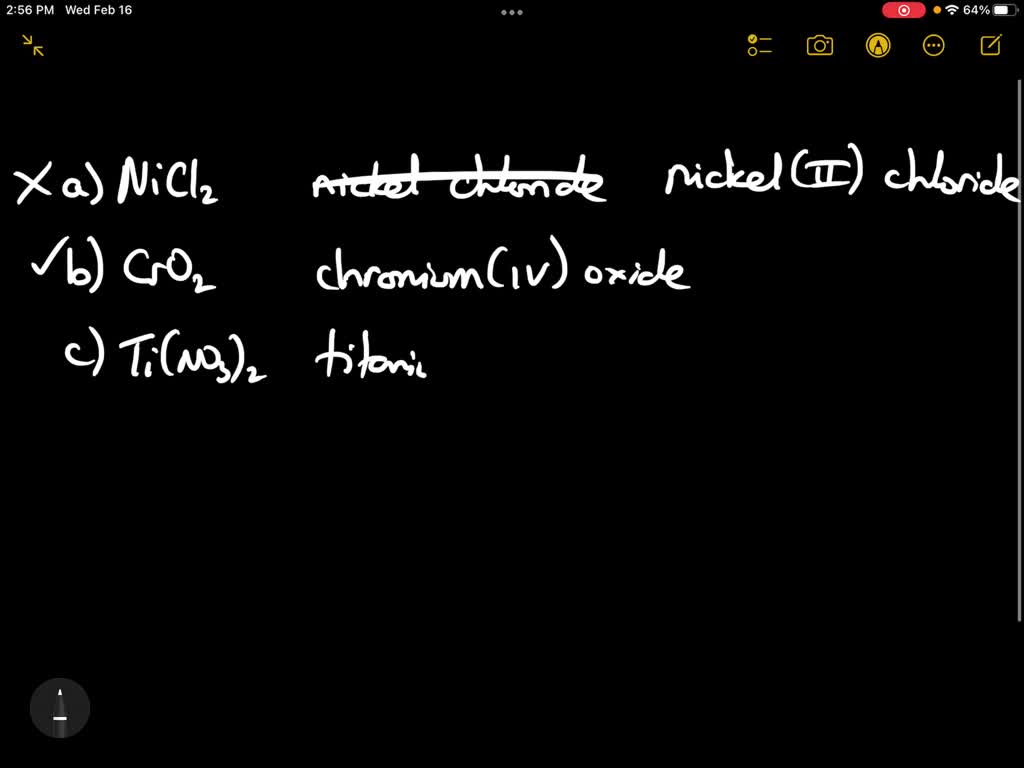 2:56 PM Wed Feb 16 64%
X a) NiCl2 nickel chloride nickel (II) chloride
✓ b) CrO2 chromium (IV) oxide
c) Ti(NO3)2 titani